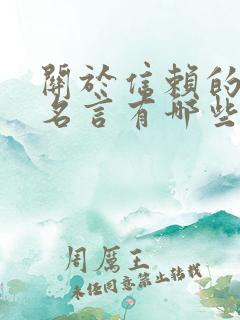 關於信賴的
名言有哪些
周厲王
未经同意禁止转载